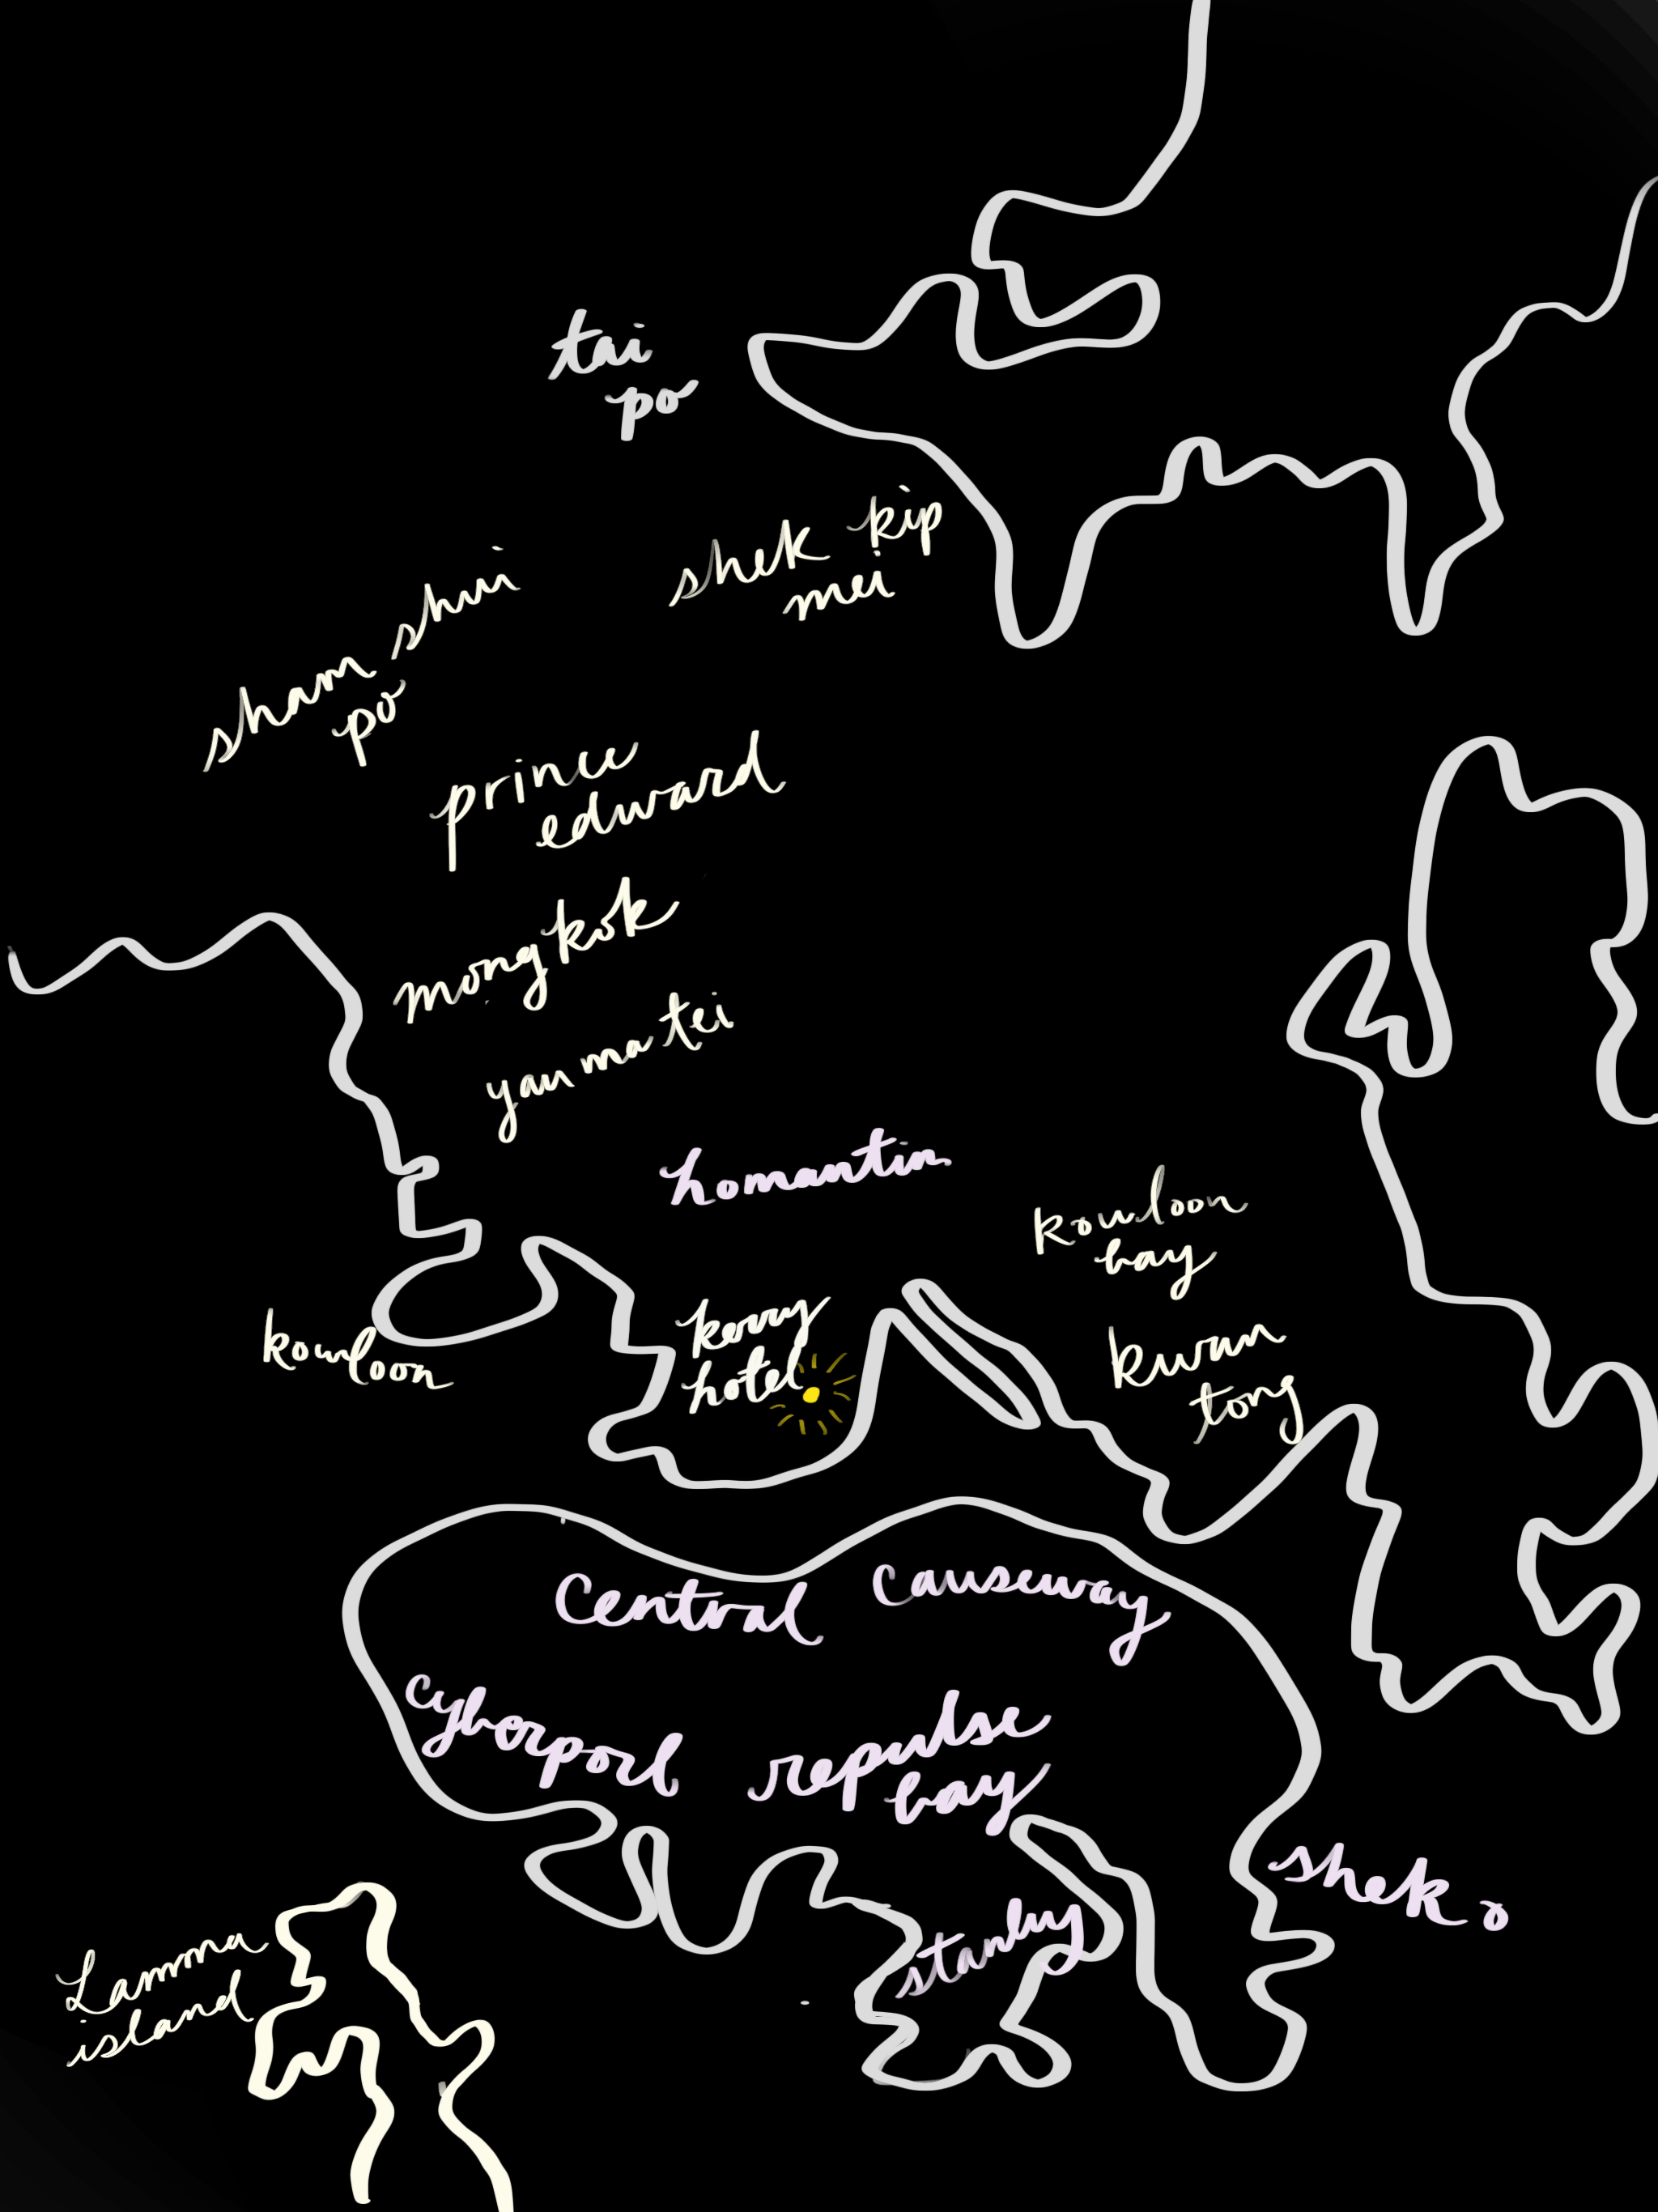 tai
po
shek kip
mei
sham shui
po
prince
edward
mongkok
yau ma tei
homantin
kowloon
bay
kerry
hotel
kowloon
kwun
tong
central
causeway
cyberport
repulse
bay
shek o
stanley
Lamma
island